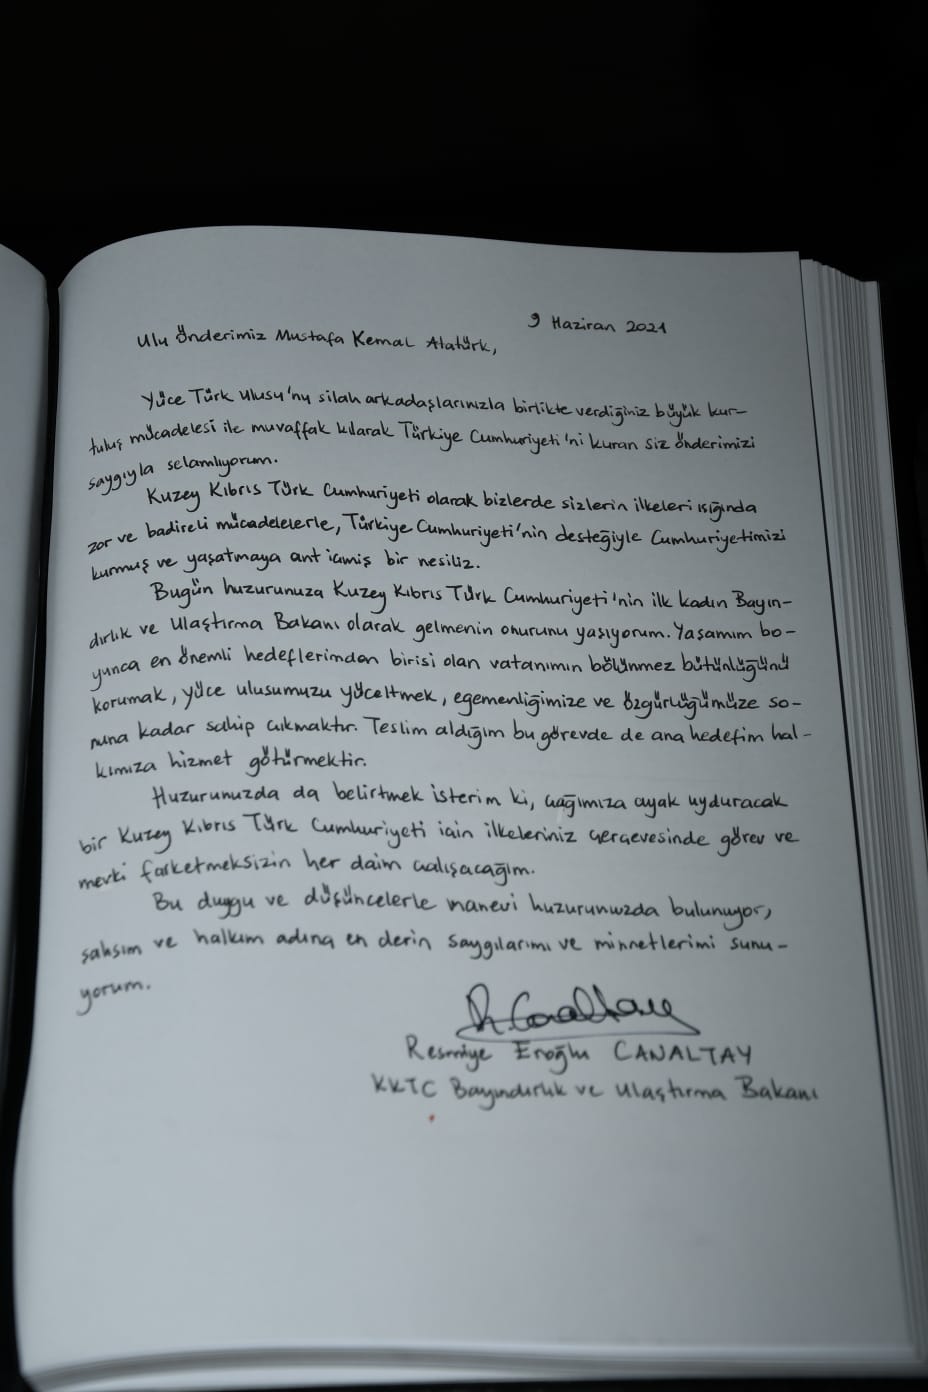 9 Haziran 2021
Ulu Önderimiz Mustafa Kemal Atatürk,
Yüce Türk Ulusu'nu silah arkadaşlarınızla birlikte verdiğiniz büyük kur-
tuluş mücadelesi ile muvaffak kılarak Türkiye Cumhuriyeti'ni kuran siz önderimizi
saygıyla selamlıyorum.
Kuzey Kıbrıs Türk Cumhuriyeti olarak bizlerde sizlerin ilkeleri ışığında
zor ve badireli mücadelelerle, Türkiye Cumhuriyeti'nin desteğiyle Cumhuriyetimizi
kurmuş ve yaşatmaya ant içmiş bir nesiliz.
Bugün huzurunuza Kuzey Kıbrıs Türk Cumhuriyeti'nin ilk kadın Bayın-
dırlık ve Ulaştırma Bakanı olarak gelmenin onurunu yaşıyorum. Yaşamım bo-
yunca en önemli hedeflerimden birisi olan vatanımın bölünmez bütünlüğünü
korumak, yüce ulusumuzu yüceltmek, egemenliğimize ve özgürlüğümüze so-
nuna kadar sahip çıkmaktır. Teslim aldığım bu görevde de ana hedefim hal-
kımıza hizmet götürmektir.
Huzurunuzda da belirtmek isterim ki, çağımıza ayak uyduracak
bir Kuzey Kıbrıs Türk Cumhuriyeti için ilkeleriniz çerçevesinde görev ve
mevki farketmeksizin her daim çalışacağım.
Bu duygu ve düşüncelerle manevi huzurunuzda bulunuyor,
şahsım ve halkım adına en derin saygılarımı ve minnetlerimi sunu-
yorum.
R. Canaltay
Resmiye Eroğlu CANALTAY
KKTC Bayındırlık ve Ulaştırma Bakanı